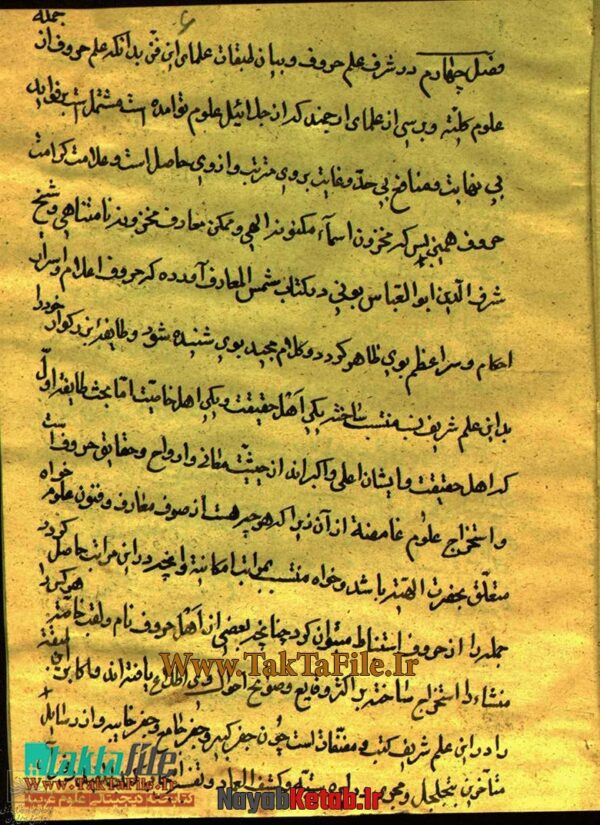 جمله
فصل چهارم در شرف علم حروف و بیان طبقات علمای این فن بدانکه علم حروف از
علوم کلیّه و برسی از علمای ارجمند که از جلائیل علوم بوامده است و مشتمل است بر فواید
بی نهایت و منافع بی حدّ و غایت بروی مترتب و از وی حاصل است و علامت کرامت
حروف همین بس که مخزون اسمآء مکنونه الهی و مکمن معارف مخزونه نامتناهی و شیخ
شرف الدین ابو العباس بونی در کتاب شمس المعارف آورده که حروف اعلام و اسرار
احکام و سر اعظم بوی ظاهر کردد و کلام مجید بوی شنیده شود و طایفه بزرکوار خود را
بد این علم شریف منتسب ساخته یکی اهل حقیقت و یکی اهل خاصیت اما بحث طایفه اول
که اهل حقیقت و ایشان اعلی و اکبراند از حیثیت معانی و ارواح و حقایق حروف است
و استخراج علوم غامضه از آن زیرا که هر چه هست از صوف معارف و فنون علوم خواه
متعلق بحضرت الهیّه باشد و خواه منتسب بمراتب امکانیة و آنچه در این مراتب حاصل کردد
جمله را از حروف استنباط میتوان کرد چنانچه بعضی از اهل حروف نام و لقب خاصه هر کس را
منشاء استخراج ساخته بر اکثر وقایع و صوایح احوال وی اطلاع یافته اند و اکابر
را در این علم شریف کتب و مصنفات است چون جفر کبیر و جفر جامع و جفر خابیه و از رسایل
متأخرین
www.TakTaFile.Ir
Taktafile
www.TakTaFile.Ir
NayabKetab.ir